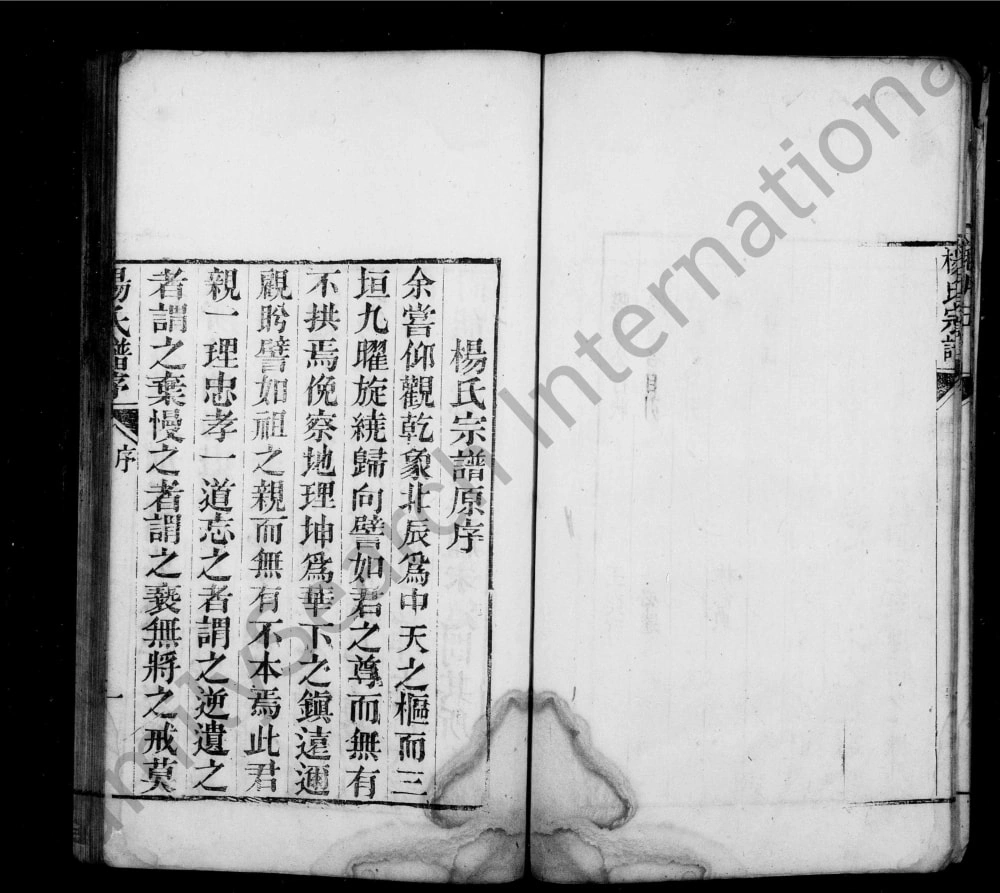 楊氏宗譜
楊氏宗譜原序
余嘗仰觀乾象北辰為中天之樞而三
垣九曜旋繞歸向譬如君之尊而無有
不拱焉俛察地理坤為華下之鎮遠邇
顧盻譬如祖之親而無有不本焉此君
親一理忠孝一道忘之者謂之逆遺之
者謂之棄慢之者謂之褻無將之戒莫
楊氏譜序
序
一
SearchInternational